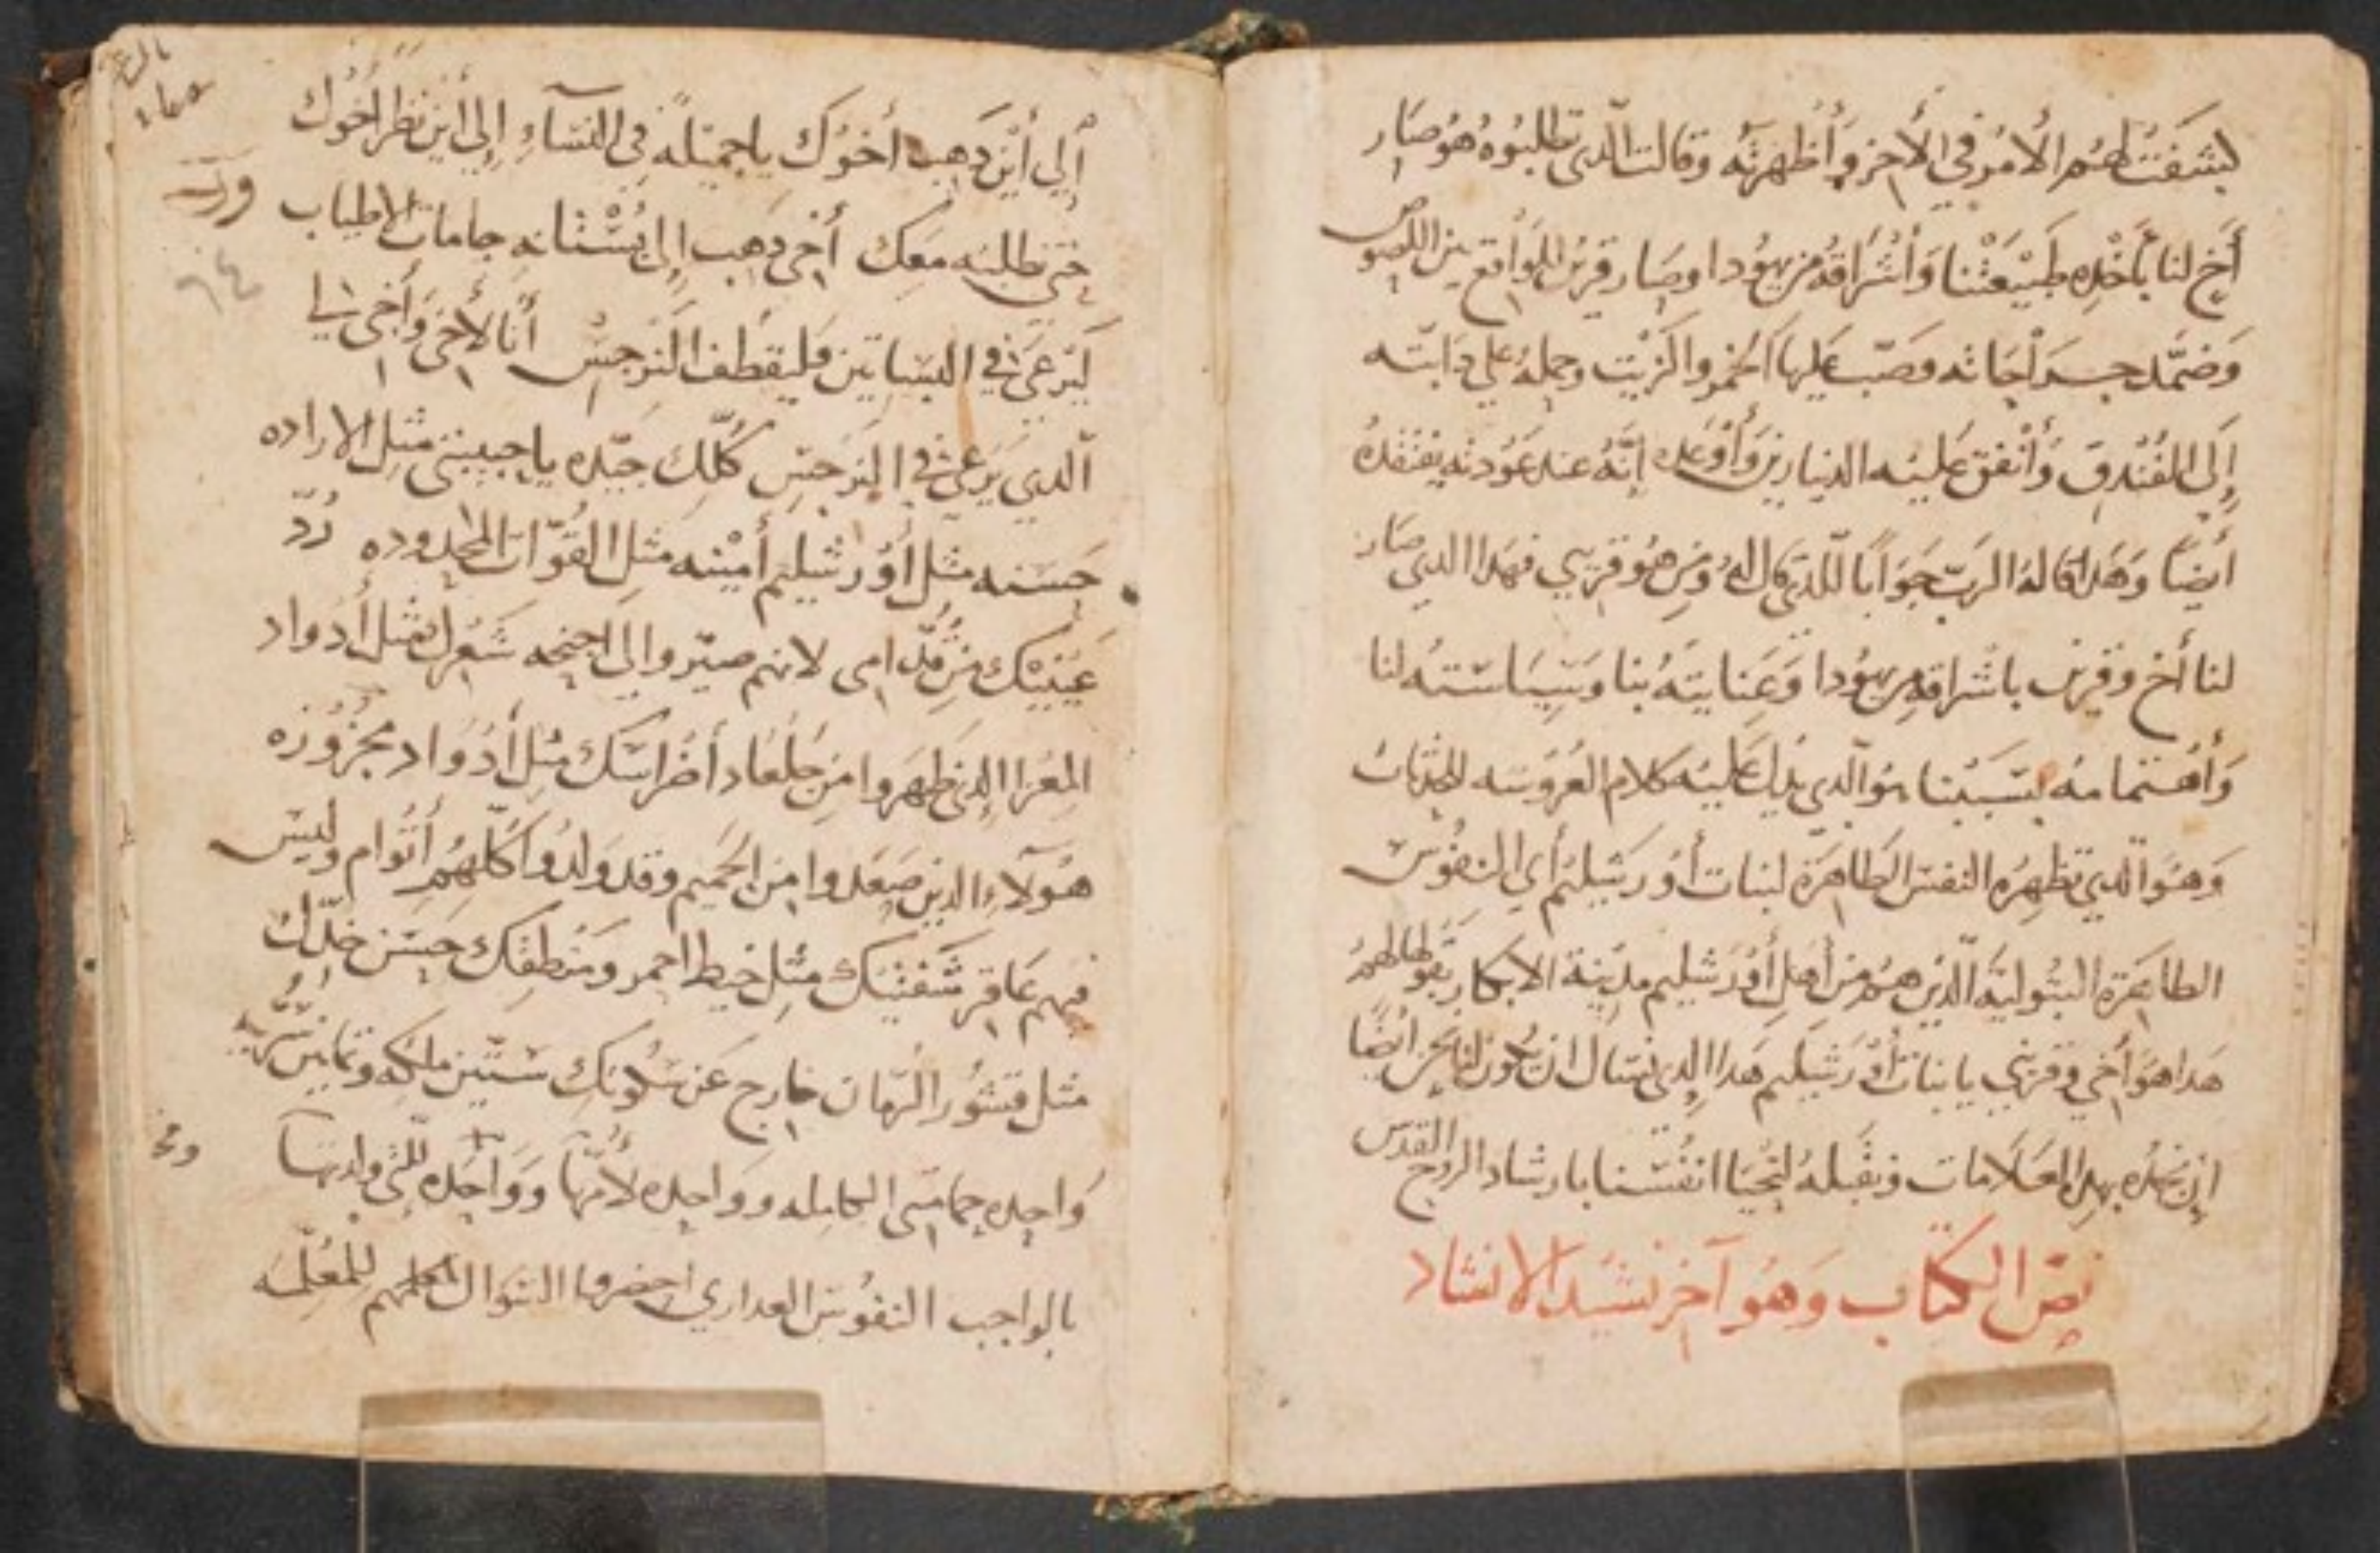 كشفت لهم الأمر في الأخر وأظهرته وقالت الدي تطلبوه هو صار
أخ لنا بأخده طبيعتنا وأشراقه من يهودا وصار قريب للواقع بين اللصوص
وضمّد جراحاته وصبّ عليها الخمر والزيت وحمله علي دابّته
إلى الفندق وأنفق عليه الدينارين وأوعده إنّه عند عودته يفتقده
أيضًا وهدا قاله الربّ جوابًا للدي قال له ومن هو قريبي فهدا الدي صار
لنا أخ وقريب باشراقه من يهودا وعنايته بنا وسياسته لنا
وأهتمامه بسببنا هو الّدي يدل عليه كلام العروسه
وهو الّدي تظهره النفس الطاهرة لبنات أورشليم أي النفوس
الطاهرة البتولية الّدين هم من أهل أورشليم مدينة الابكار بقولها لهم
هدا هو أخي وقريبي يا بنات أورشليم هدا الدي نسال ان يكون لنا نحن ايضًا
ان نجده بهده العلامات ونقبله لتحيا انفسنا بارشاد الروح القدس
نصّ الكتاب وهو آخر نشيد الانشاد
إلي أين دهب أخوك يا جميلة في النساء إلى أين نظر أخوك
حتى نطلبه معك أخي دهب إلى بستانه جامات الاطياب
ليرعى في البساتين وليقطف النرجس أنا لأخي وأخي لي
الّدي يرعى في النرجس كلّك جيّده يا حبيبتي مثل الاراده
حسنه مثل أورشليم أمينه مثل القوّات المحدوده ردّ
عينيك من قدّامي لانهم صيّروا لي اجنحه شعرك مثل أدواد
المعزا الدين ظهروا من جلعاد أضراسك مثل أدواد مجزوزه
هولآء الدين صعدوا من الحميم وقد ولدوا كلّهم أتوام وليس
فيهم عاقر شفتيك مثل خيط احمر ومنطقك حسن خدّك
مثل قشور الرّمان خارج عن سكوتك ستّين ملكه وثمانين سرّيه
واحده حمامتي الكامله وواحده لأمّها وواحده للتي ولدتها
بالواجب النفوس العداري احضروا السوال لمعلمهم